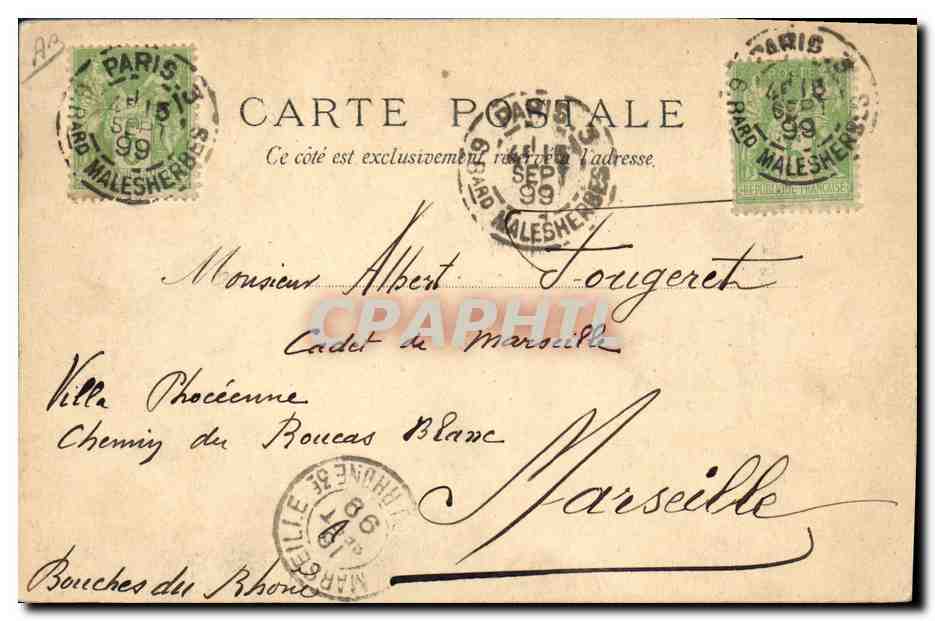 AB
PARIS 3
SEPT
99
6 BARD MALESHERBES
PARIS 3
SEPT
99
6 BARD MALESHERBES
PARIS 3
SEPT
99
6 BARD MALESHERBES
REPUBLIQUE FRANÇAISE
CARTE POSTALE
Ce côté est exclusivement réservé à l'adresse.
Monsieur Albert Fougeret
CPAPHIL
Cadet de Marseille
Villa Phocéenne
Chemin du Roucas Blanc
Marseille
MARSEILLE
SEPT
99
Bouches du Rhône